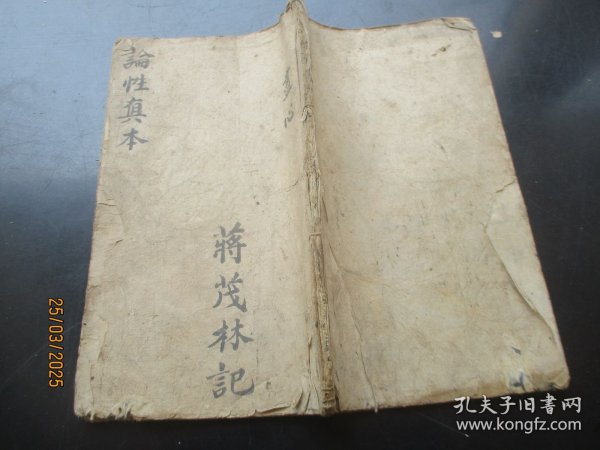 論性真本
蔣茂林記
25/03/2025
孔夫子旧书网
www.kongfz.com